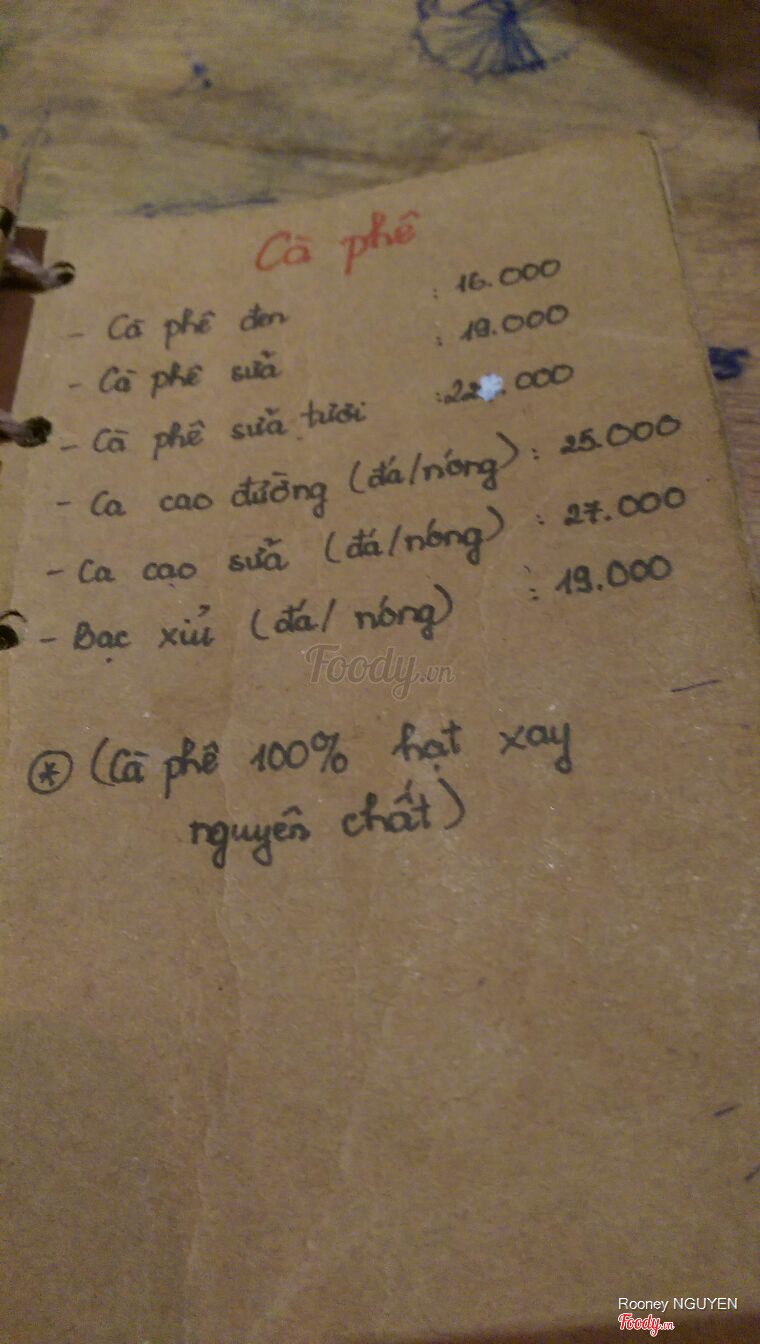 Cà phê
- Cà phê đen : 16.000
- Cà phê sữa : 19.000
- Cà phê sữa tươi : 22.000
- Ca cao đường (đá/nóng) : 25.000
- Ca cao sữa (đá/nóng) : 27.000
- Bạc xỉu (đá/ nóng) : 19.000
Foody.vn
* (Cà phê 100% hạt xay
nguyên chất)
Rooney NGUYEN
Foody.vn